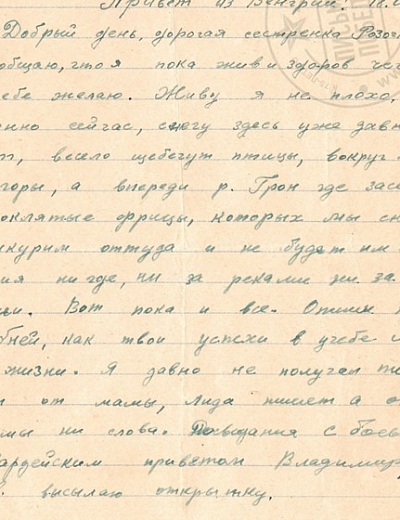 Привет из Венгрии! 18.
Добрый день, дорогая сестренка
общаю, что я пока жив и здоров чего
ебе желаю. Живу я не плохо,
енно сейчас, снегу здесь уже давно
т, весело щебечут птицы, вокруг
горы, а впереди р. Грон где засе
оклятые фрицы, которых мы ско
ыкурим оттуда и не будет им
ия нигде, ни за реками ни за
ми. Вот пока и все. Опиши
бней, как твои успехи в учебе и
жизни. Я давно не получал
и от мамы, Лида пишет а о
мы ни слова. До свидания с боевы
вардейским приветом Владимир
высылаю открытку.